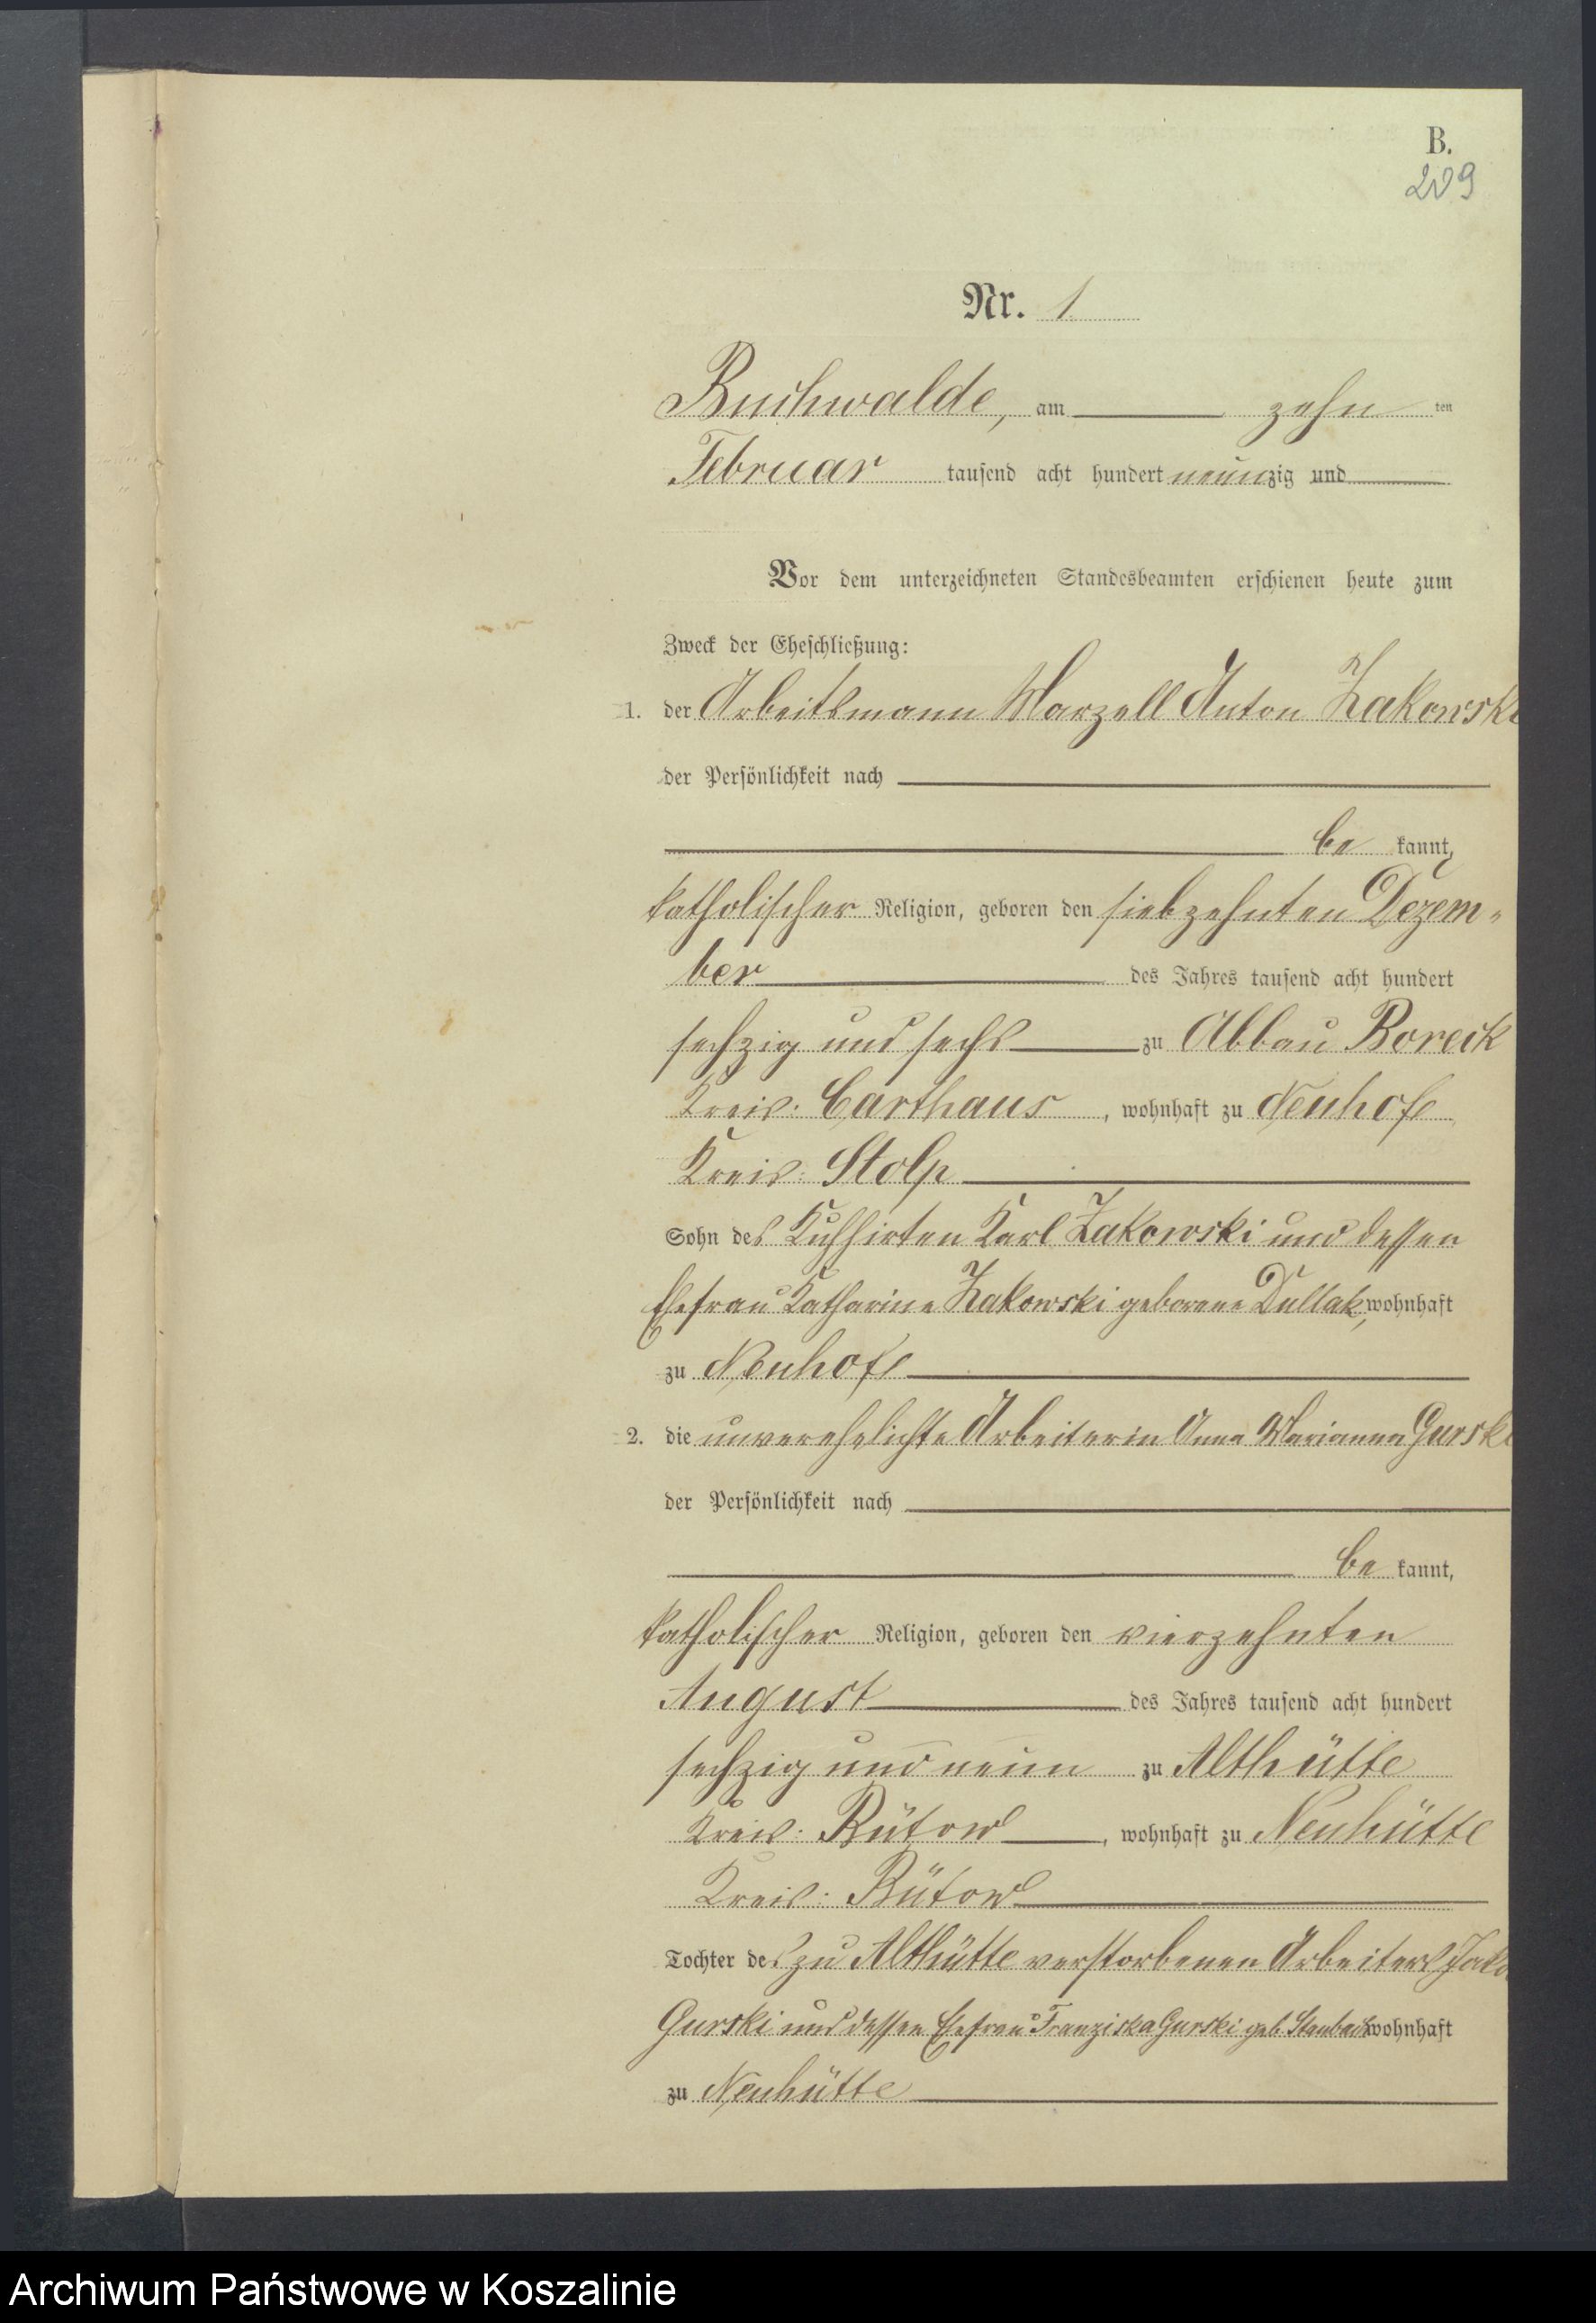 B.
209
Nr. 1
Buchwalde, am zehn ten
Februar tausend acht hundert neunzig und
Vor dem unterzeichneten Standesbeamten erschienen heute zum
Zweck der Eheschließung:
1. der Arbeitsmann Marzell Anton Zakowski
der Persönlichkeit nach
be kannt,
katholischer Religion, geboren den siebzehnten Dezem-
ber des Jahres tausend acht hundert
sechzig und sechs zu Abbau Boreck
Kreis: Carthaus, wohnhaft zu Neuhof
Kreis: Stolp
Sohn des Kuhhirten Karl Zakowski und dessen
Ehefrau Katharine Zakowski geborene Dullak, wohnhaft
zu Neuhof
2. die unverehelichte Arbeiterin Anna Marianna Gurski
der Persönlichkeit nach
be kannt,
katholischer Religion, geboren den vierzehnten
August des Jahres tausend acht hundert
sechzig und neun zu Althütte
Kreis: Bütow, wohnhaft zu Neuhütte
Kreis: Bütow
Tochter des zu Althütte verstorbenen Arbeiters Jako
Gurski und dessen Ehefrau Franziska Gurski geb. wohnhaft
zu Neuhütte
Archiwum Państwowe w Koszalinie